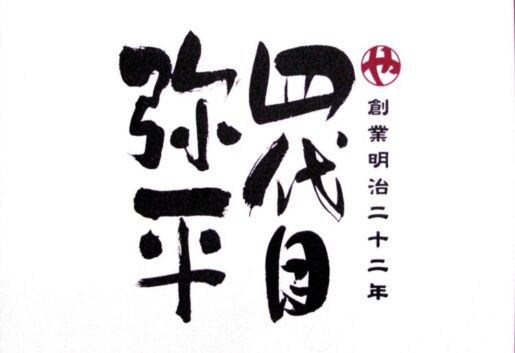 や
創業明治二十二年
四代目
弥平